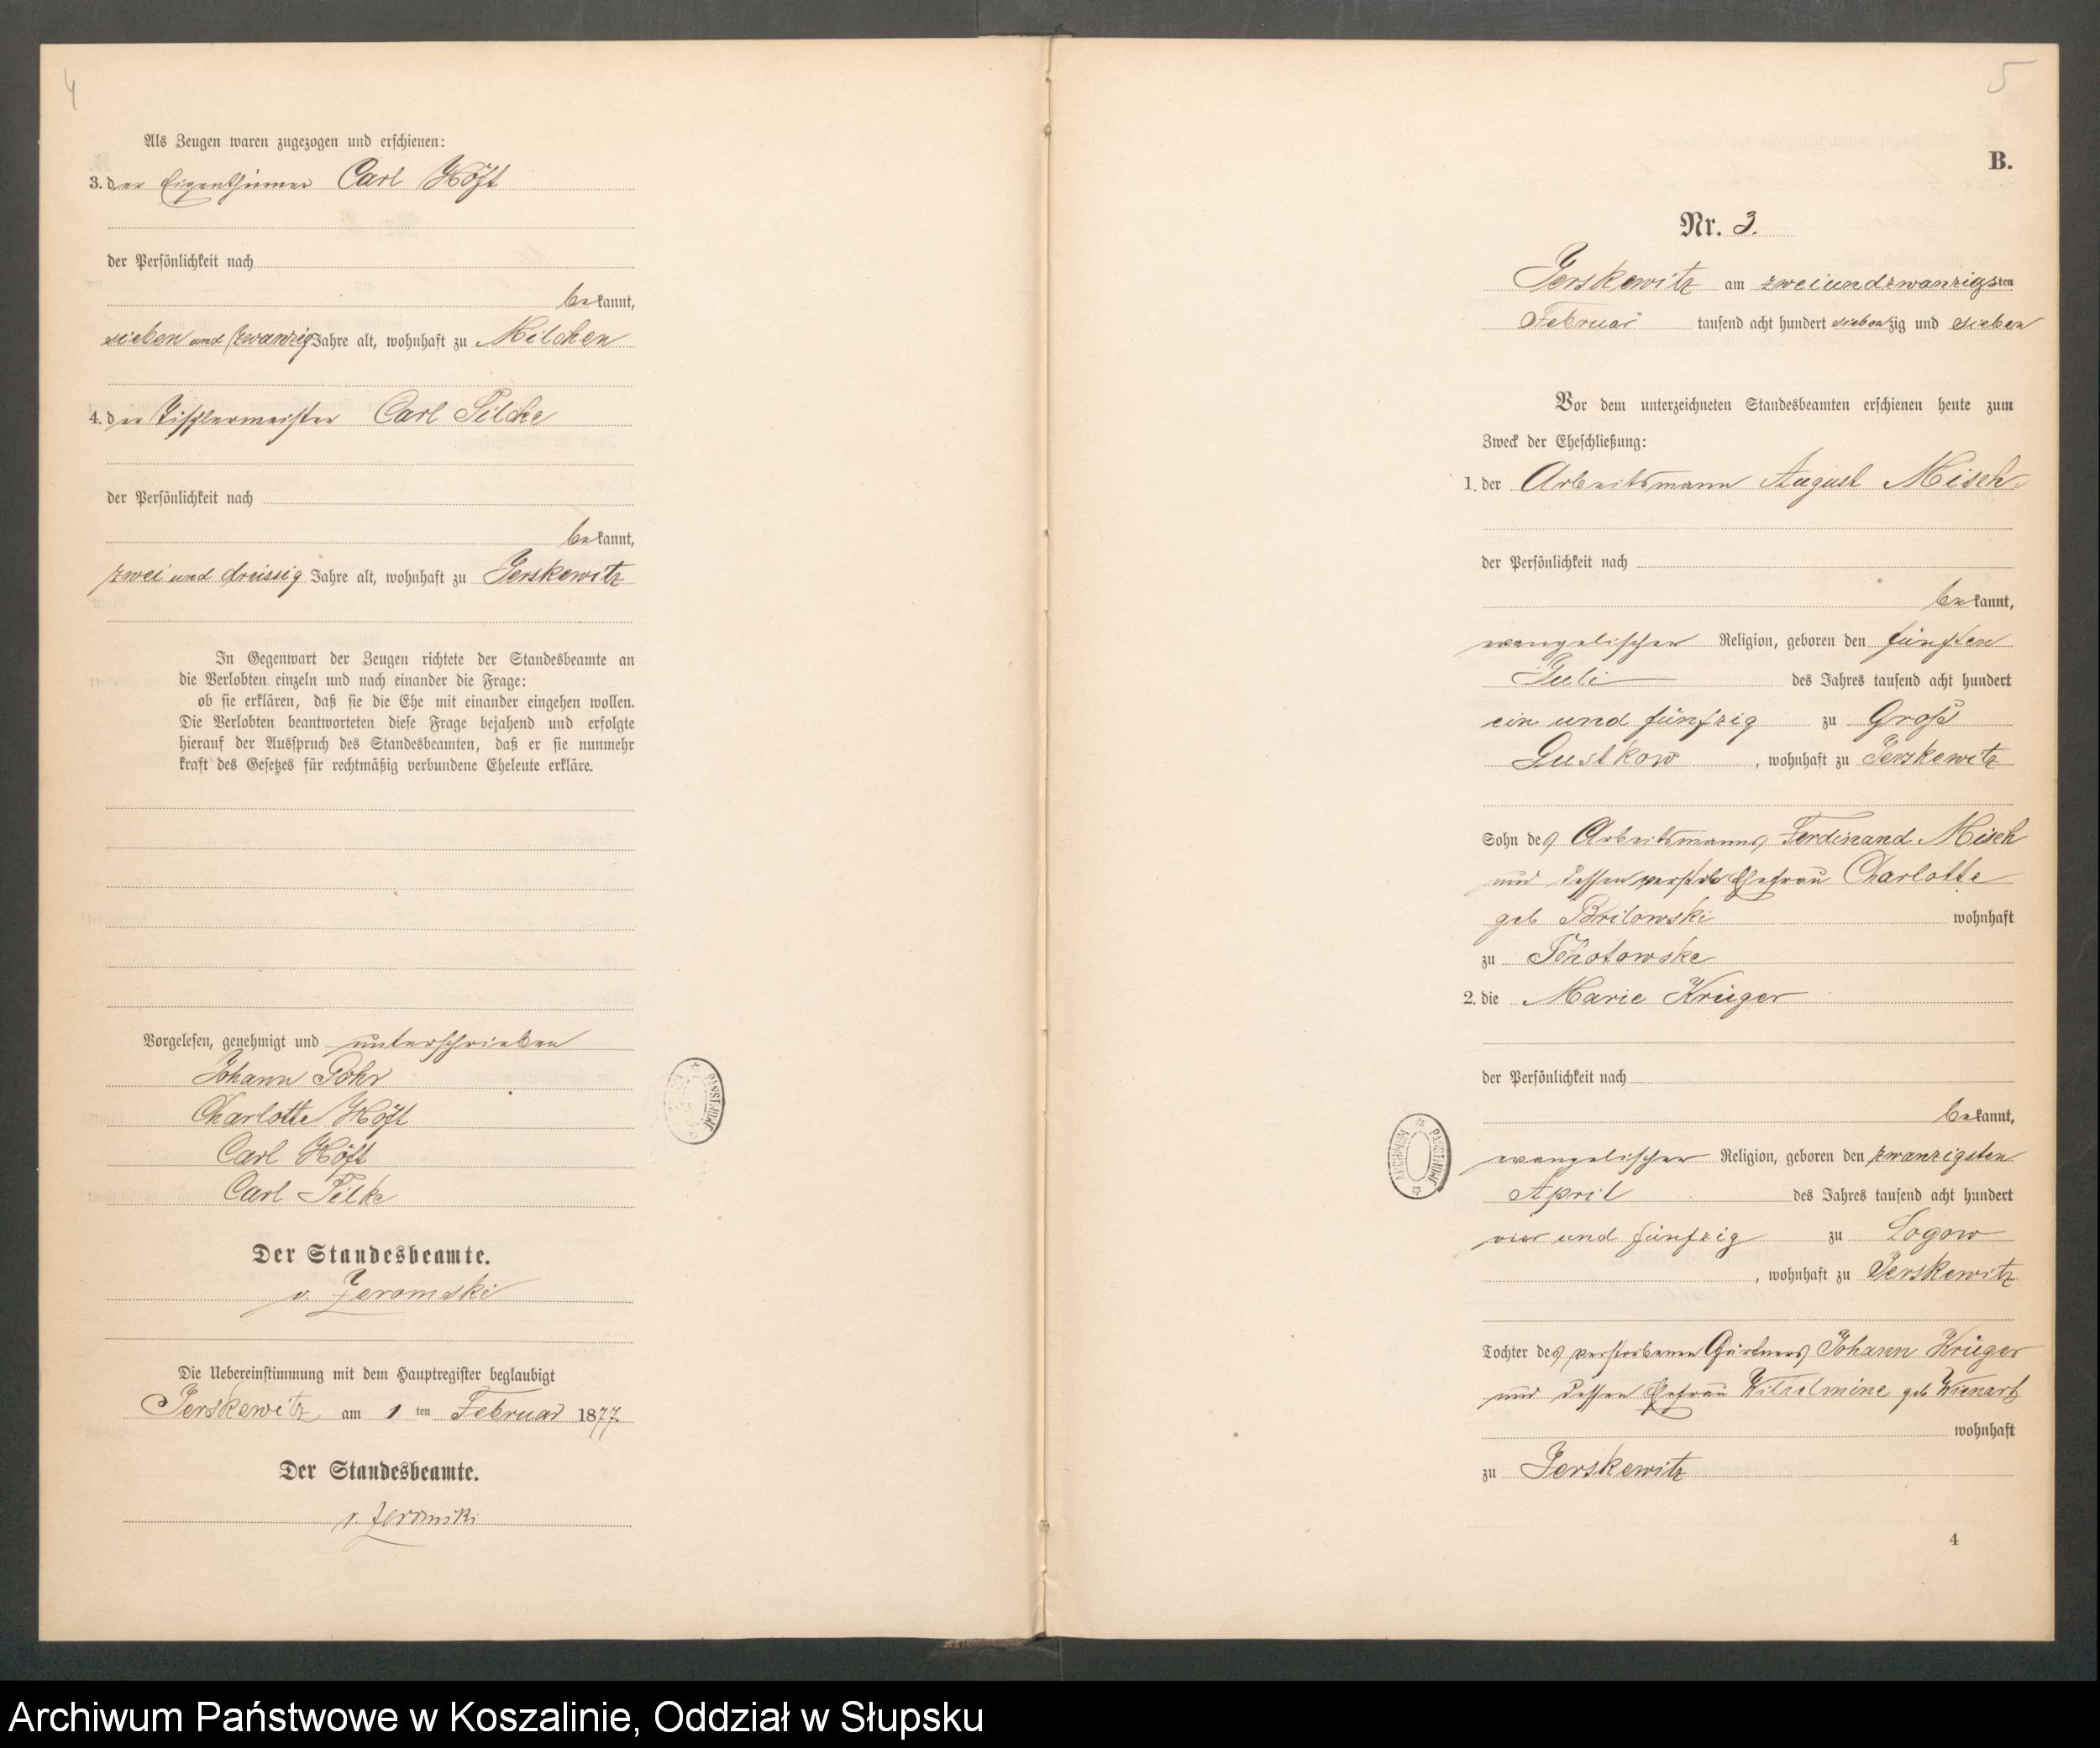 4
Als Zeugen waren zugezogen und erschienen:
3. der Eigenthümer Carl Höft
der Persönlichkeit nach
bekannt,
sieben und zwanzig Jahre alt, wohnhaft zu Milchen
4. der Tischlermeister Carl Tilcke
der Persönlichkeit nach
bekannt,
zwei und dreissig Jahre alt, wohnhaft zu Jerskewitz
In Gegenwart der Zeugen richtete der Standesbeamte an
die Verlobten einzeln und nach einander die Frage:
ob sie erklären, daß sie die Ehe mit einander eingehen wollen.
Die Verlobten beantworteten diese Frage bejahend und erfolgte
hierauf der Ausspruch des Standesbeamten, daß er sie nunmehr
kraft des Gesetzes für rechtmäßig verbundene Eheleute erkläre.
Vorgelesen, genehmigt und unterschrieben
Johann Göhr
Charlotte Höft
Carl Höft
Carl Tilke
Der Standesbeamte.
v. Zeromski
Die Uebereinstimmung mit dem Hauptregister beglaubigt
Jerskewitz am 1 ten Februar 1877.
Der Standesbeamte.
v. Zeromski
5
B.
Nr. 3.
Jerskewitz am zweiundzwanzigsten
Februar tausend acht hundert siebenzig und sieben
Vor dem unterzeichneten Standesbeamten erschienen heute zum
Zweck der Eheschließung:
1. der Arbeitsmann August Misch
der Persönlichkeit nach
bekannt,
evangelischer Religion, geboren den fünften
Juli des Jahres tausend acht hundert
ein und fünfzig zu Groß
Gustkow, wohnhaft zu Jerskewitz
Sohn des Arbeitsmanns Ferdinand Misch
und dessen verstorb Ehefrau Charlotte
geb Brilowski wohnhaft
zu
2. die Marie Krüger
der Persönlichkeit nach
bekannt,
evangelischer Religion, geboren den zwanzigsten
April des Jahres tausend acht hundert
vier und fünfzig zu Logow
, wohnhaft zu Jerskewitz
Tochter des verstorbenen Gärtners Johann Krüger
und dessen Ehefrau Wilhelmine geb
wohnhaft
zu Jerskewitz
4
ARCHIWUM PAŃSTWOWE
Archiwum Państwowe w Koszalinie, Oddział w Słupsku